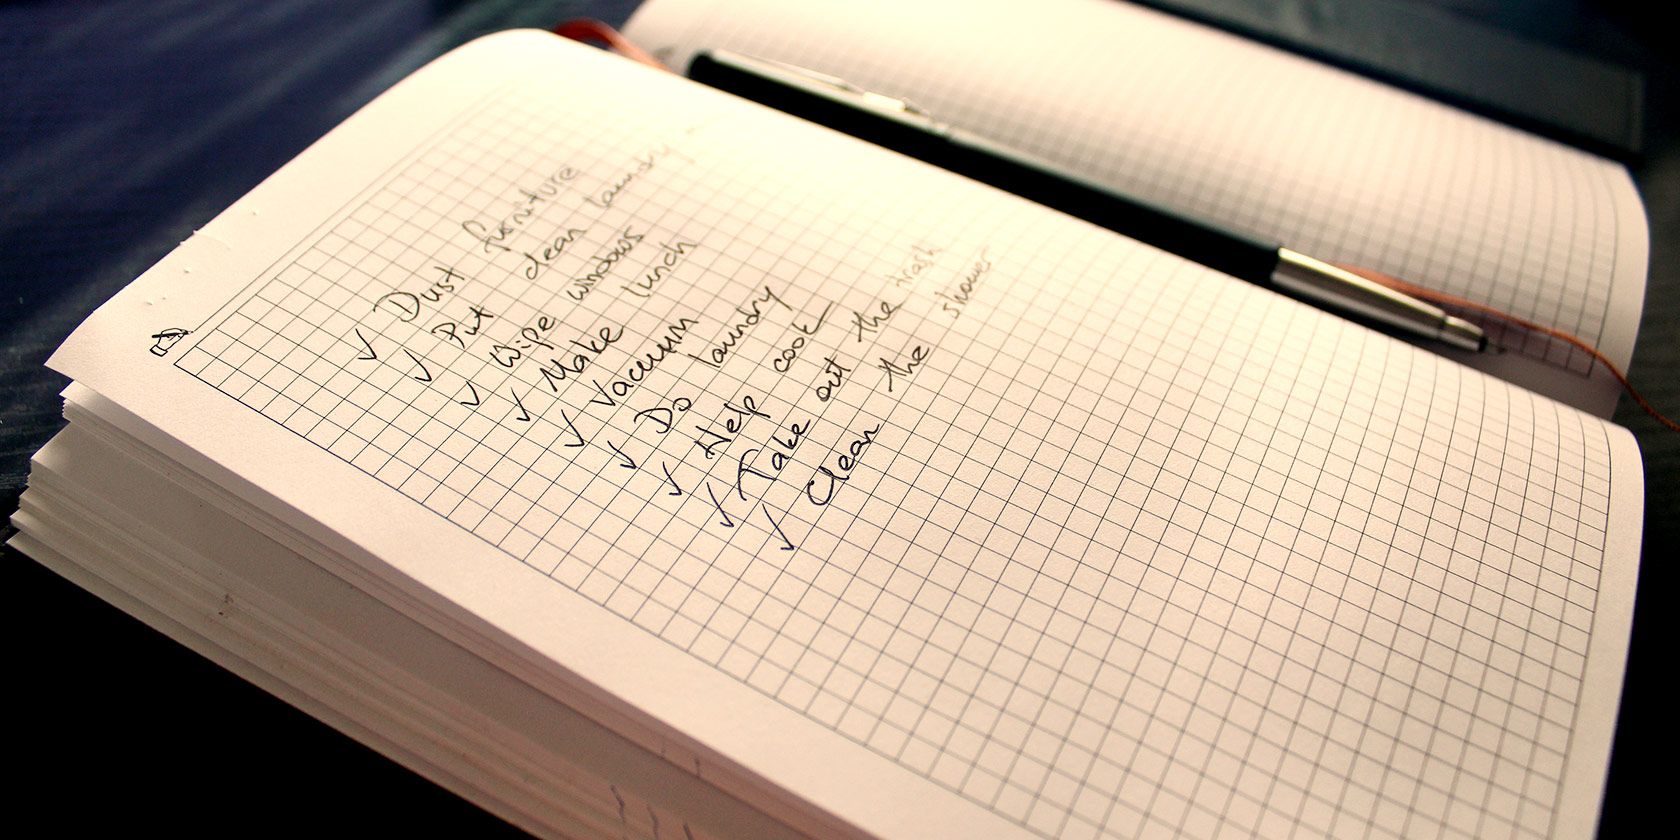 ✓ Dust furniture
✓ Put clean laundry
✓ Wipe windows
✓ Make lunch
✓ Vacuum
✓ Do laundry
✓ Help cook
✓ Take out the trash
✓ Clean the shower